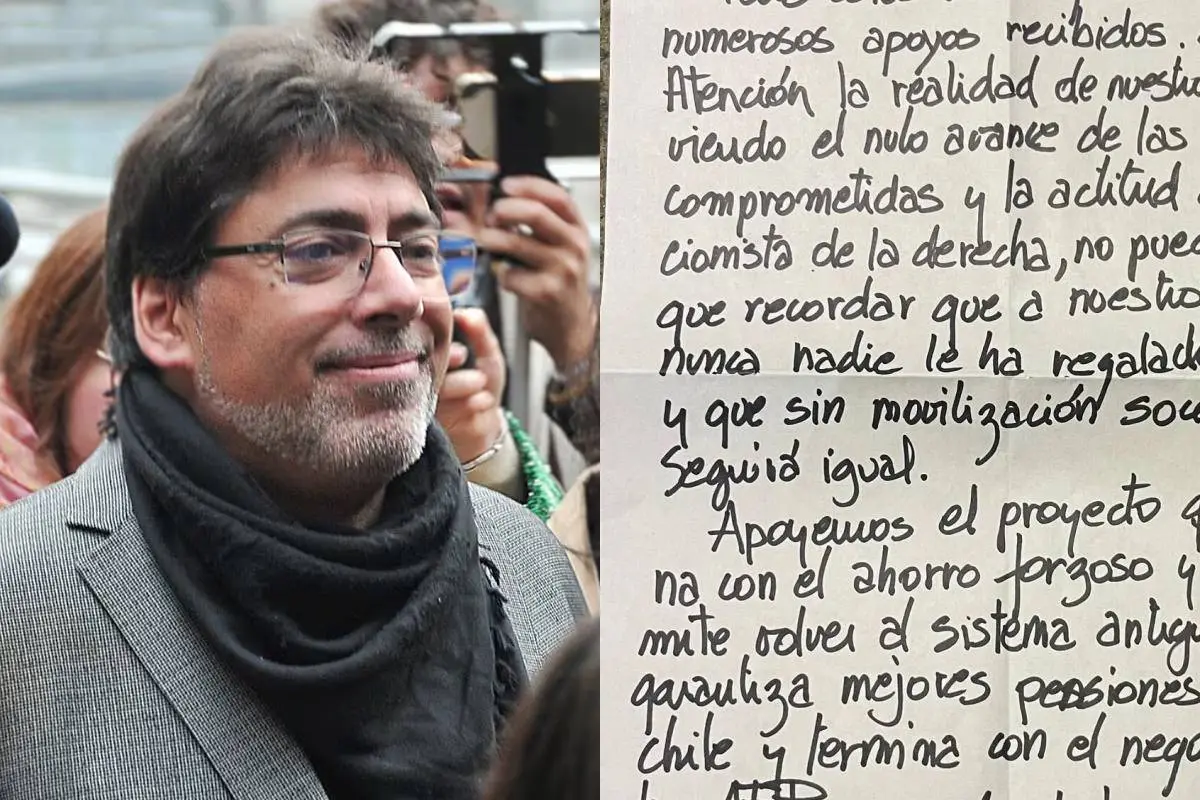 numerosos apoyos recibidos.
Atención la realidad de nuestro
viendo el nulo avance de las
comprometidas y la actitud
cionista de la derecha, no pued
que recordar que a nuestro
nunca nadie le ha regalado
y que sin movilización soc
seguirá igual.
Apoyemos el proyecto q
na con el ahorro forzoso y
mite volver al sistema antig
garantiza mejores pensiones
chile y termina con el nego